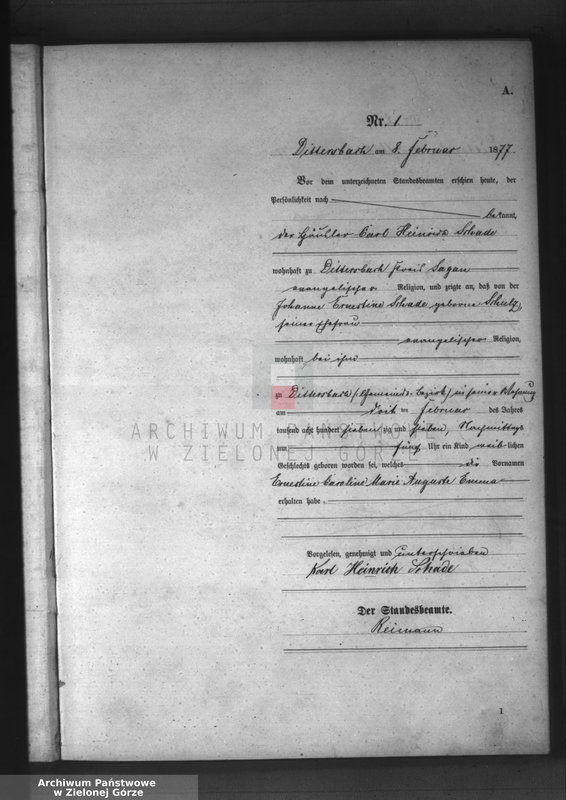 A.
Nr. 1
Dittersbach am 8. Februar 1877
Vor dem unterzeichneten Standesbeamten erschien heute, der
Persönlichkeit nach
bekannt,
der Häusler Carl Heinrich Schade
wohnhaft zu Dittersbach Kreis Sagan
evangelischer Religion, und zeigte an, daß von der
Johanne Ernestine Schade geborne Schulz,
seiner Ehefrau
evangelischer Religion,
wohnhaft bei ihm
zu Dittersbach (: Gemeinde-Bezirk :) in seiner Wohnung
am Februar des Jahres
tausend acht hundert sieben zig und sieben, Nachmittags
um fünf Uhr ein Kind weiblichen
Geschlechts geboren worden sei, welches die Vornamen
Ernestine Caroline Marie Auguste Emma
erhalten habe.
Vorgelesen, genehmigt und unterschrieben
Karl Heinrich Schade
Der Standesbeamte.
Reimann
1
ARCHIWUM PAŃSTWOWE
W ZIELONEJ GÓRZE
Archiwum Państwowe
w Zielonej Górze